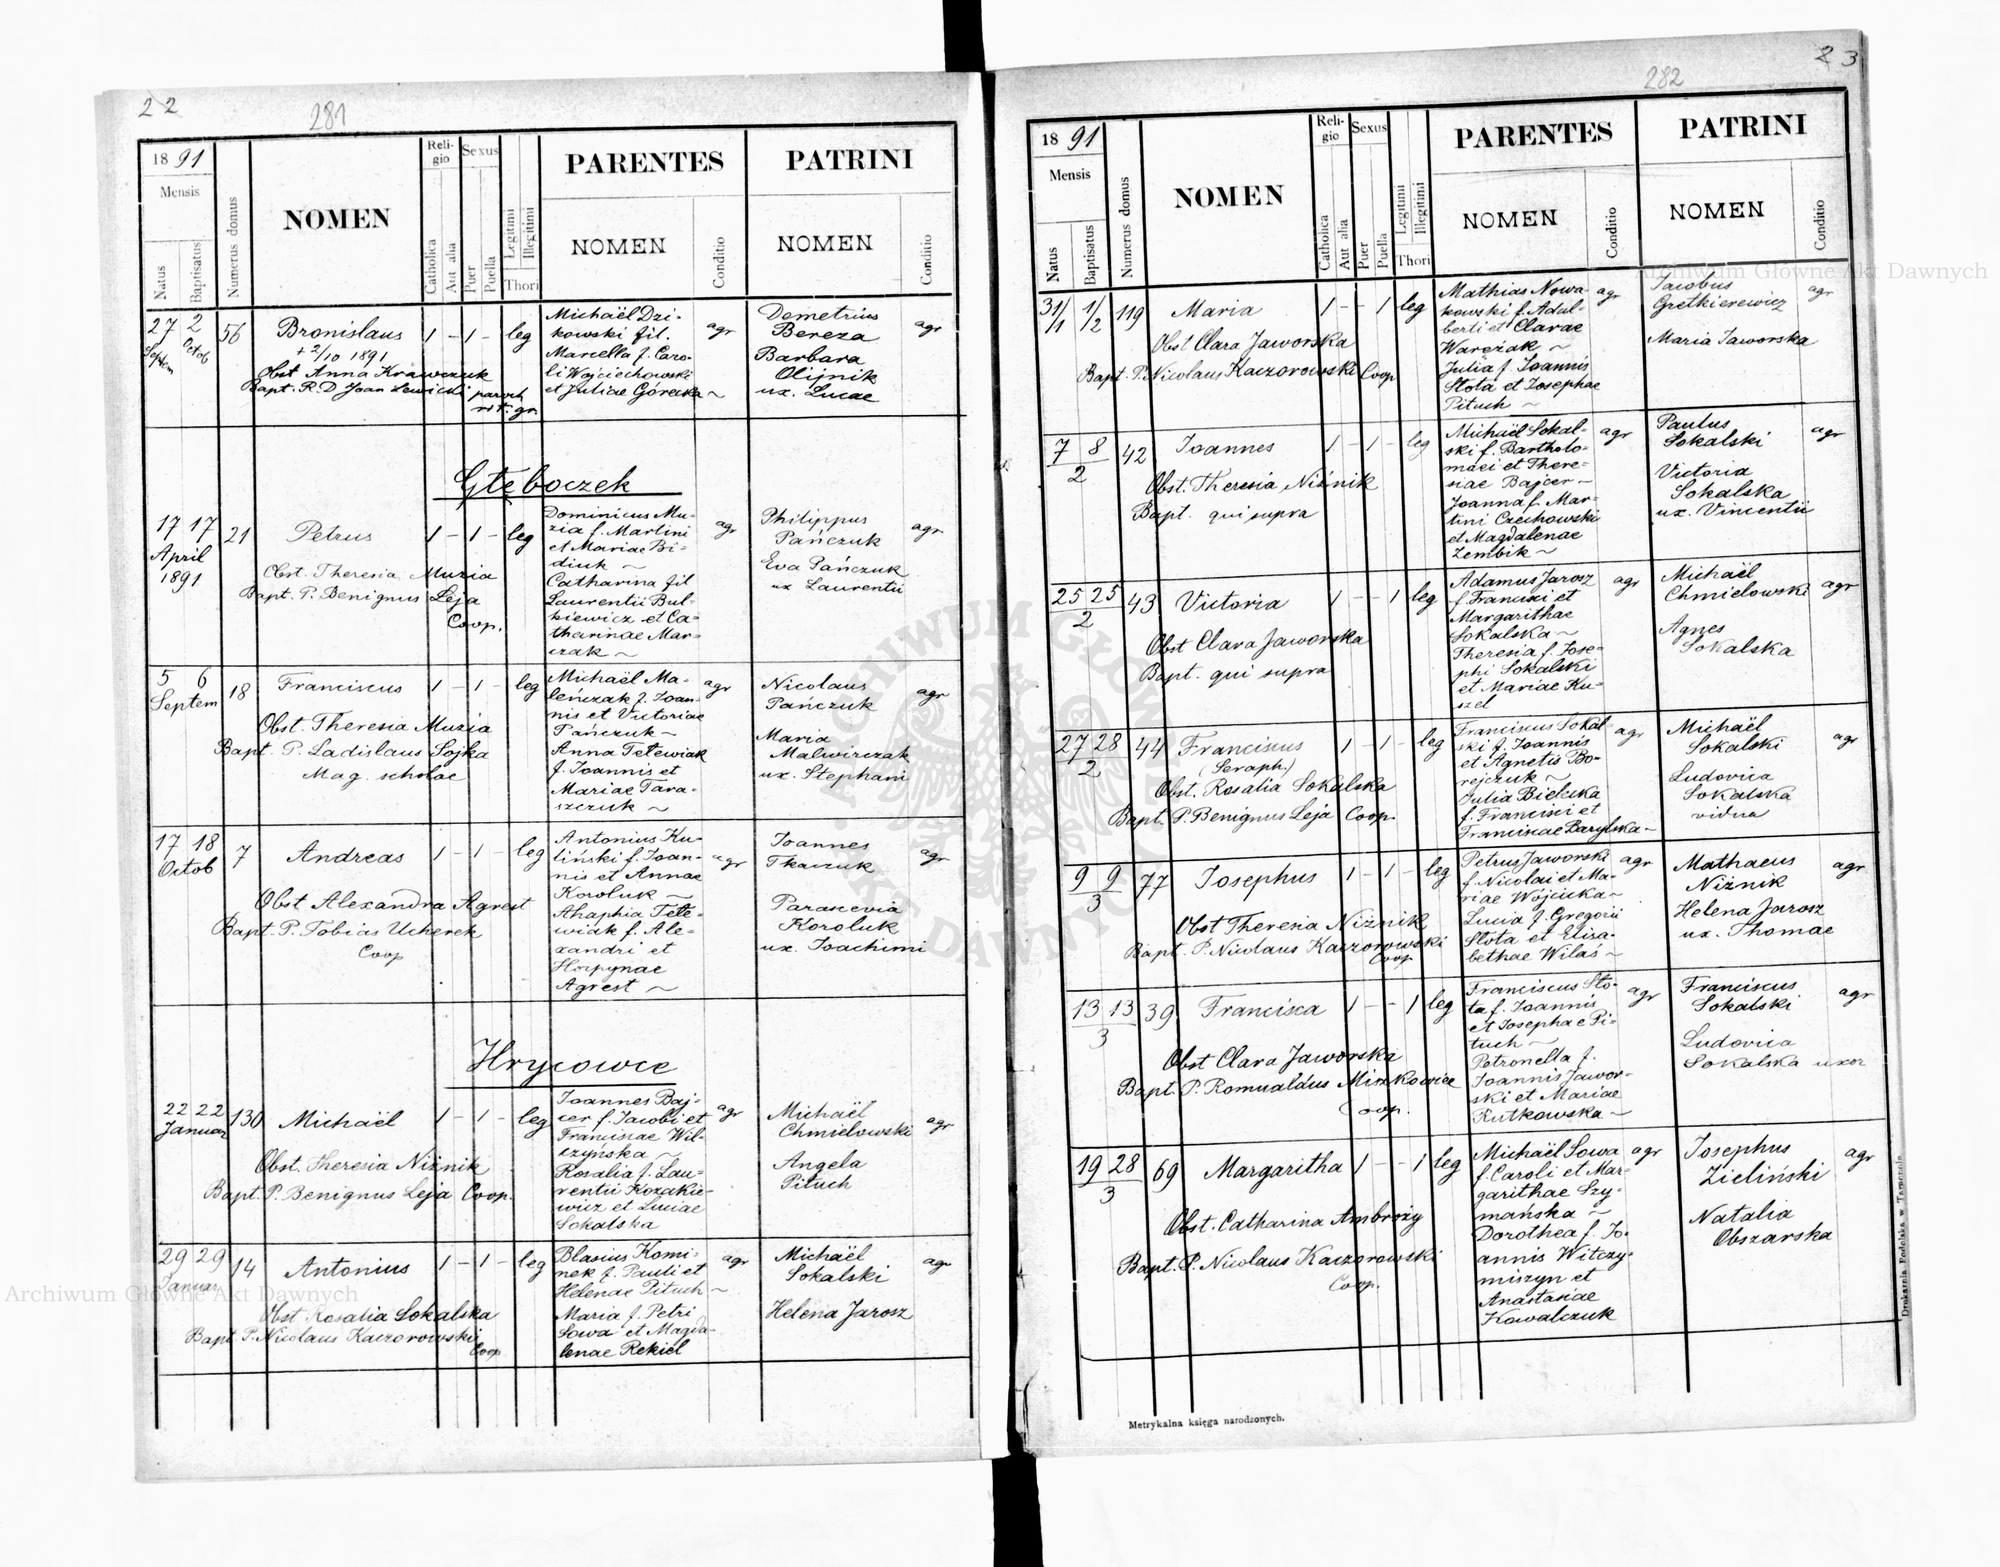 22
281
1891
Mensis
Natus
Baptisatus
Numerus domus
NOMEN
Reli-
gio
Catholica
Aut alia
Sexus
Puer
Puella
Legitimi
Illegitimi
Thori
PARENTES
NOMEN
Conditio
PATRINI
NOMEN
Conditio
27 Septem 2 Octob 56 Bronislaus 1 - 1 - leg
+ 2/10 1891
Obst Anna Krawczuk
Bapt. R. D. Joan Lewicki paroch
rit. gr.
Michaël Dzi-
kowski fil.
Marcella f. Caro-
li Wojciechowski
et Juliae Górecka ~
agr
Demetrius
Bereza
Barbara
Olijnik
ux. Lucae
agr
Głęboczek
17 17 April 1891 21 Petrus 1 - 1 - leg
Obst. Theresia Muzia
Bapt. P. Benignus Leja
Coop.
Dominicus Mu-
zia f. Martini
et Mariae Bi-
diuk ~
Catharina fil
Laurentii Bul-
kiewicz et Ca-
tharinae Mar-
czak ~
agr
Philippus
Pańczuk
Eva Pańczuk
ux Laurentii
agr
5 6 Septem 18 Franciscus 1 - 1 - leg
Obst. Theresia Muzia
Bapt P. Ladislaus Sojka
Mag. scholae
Michaël Ma-
leńczak f. Joan-
nis et Victoriae
Pańczuk ~
Anna Tetewiak
f. Joannis et
Mariae Tara-
szczuk ~
agr
Nicolaus
Pańczuk
Maria
Malwirczak
ux. Stephani
agr
17 18 Octob 7 Andreas 1 - 1 - leg
Obst Alexandra Agrest
Bapt. P. Tobias Ucherek
Coop
Antonius Ku-
liński f. Joan-
nis et Annae
Koroluk ~
Ahaphia Tete-
wiak f. Ale-
xandri et
Horpynae
Agrest ~
agr
Joannes
Tkaczuk
Parascevia
Koroluk
ux. Joachimi
agr
Hrycowce
22 22 Januar 130 Michaël 1 - 1 - leg
Obst. Theresia Niźnik
Bapt. P. Benignus Leja Coop.
Joannes Baj-
cer f. Jacobi et
Franciscae Wil-
czyńska ~
Rosalia f. Lau-
rentii Kozakie-
wicz et Luciae
Sokalska
agr
Michaël
Chmielowski
Angela
Pituch
agr
29 29 Januar 14 Antonius 1 - 1 - leg
Obst Rosalia Sokalska
Bapt P. Nicolaus Kaczorowski
Coop
Blasius Komi-
nek f. Pauli et
Helenae Pituch ~
Maria f. Petri
Sowa et Magda-
lenae Rekiel
agr
Michaël
Sokalski
Helena Jarosz
agr
23
282
1891
Mensis
Natus
Baptisatus
Numerus domus
NOMEN
Reli-
gio
Catholica
Aut alia
Sexus
Puer
Puella
Legitimi
Illegitimi
Thori
PARENTES
NOMEN
Conditio
PATRINI
NOMEN
Conditio
31/1 1/2 119 Maria 1 - - 1 leg
Obst Clara Jaworska
Bapt. P. Nicolaus Kaczorowski Coop
Mathias Nowa-
kowski f. Adal-
berti et Clarae
Warczak ~
Julia f. Joannis
Słota et Josephae
Pituch ~
agr
Jacobus
Gretkierewicz
Maria Jaworska
agr
7 8 2 42 Joannes 1 - 1 - leg
Obst. Theresia Niźnik
Bapt. qui supra
Michaël Sokal-
ski f. Bartholo-
maei et There-
siae Bajcer ~
Joanna f. Mar-
tini Czechowski
et Magdalenae
Zembik ~
agr
Paulus
Sokalski
Victoria
Sokalska
ux. Vincentii
agr
25 25 2 43 Victoria 1 - - 1 leg
Obst Clara Jaworska
Bapt. qui supra
Adamus Jarosz
f. Francisci et
Margarithae
Sokalska ~
Theresia f. Jose-
phi Sokalski
et Mariae Ku-
szel
agr
Michaël
Chmielowski
Agnes
Sokalska
agr
27 28 2 44 Franciscus 1 - 1 - leg
(Seraph.)
Obst. Rosalia Sokalska
Bapt. P. Benignus Leja Coop.
Franciscus Sokal-
ski f. Joannis
et Agnetis Bo-
rejczuk ~
Julia Bielecka
f. Francisci et
Franciscae Barylska ~
agr
Michaël
Sokalski
Ludovica
Sokalska
vidua
agr
9 9 3 77 Josephus 1 - 1 - leg
Obst Theresia Niźnik
Bapt. P. Nicolaus Kaczorowski
Coop
Petrus Jaworski
f. Nicolai et Ma-
riae Wójcicka ~
Lucia f. Gregorii
Słota et Elisa-
bethae Wilaś ~
agr
Mathaeus
Niźnik
Helena Jarosz
ux. Thomae
agr
13 13 3 39 Francisca 1 - - 1 leg
Obst Clara Jaworska
Bapt. P. Romualdus Miszkowice
Coop.
Franciscus Sło-
ta f. Joannis
et Josephae Pi-
tuch ~
Petronella f.
Joannis Jawor-
ski et Mariae
Rutkowska ~
agr
Franciscus
Sokalski
Ludovica
Sokalska uxor
agr
19 28 3 69 Margaritha 1 - - 1 leg
Obst. Catharina Ambroży
Bapt. P. Nicolaus Kaczorowski
Coop.
Michaël Sowa
f. Caroli et Mar-
garithae Szy-
mańska ~
Dorothea f. Jo-
annis Witczy-
miszyn et
Anastasiae
Kowalczuk
agr
Josephus
Zieliński
Natalia
Obszarska
agr
Metrykalna księga narodzonych.
Drukarnia Podolska w Tarnopolu
Archiwum Główne Akt Dawnych
Archiwum Główne Akt Dawnych
ARCHIWUM GŁÓWNE AKT DAWNYCH